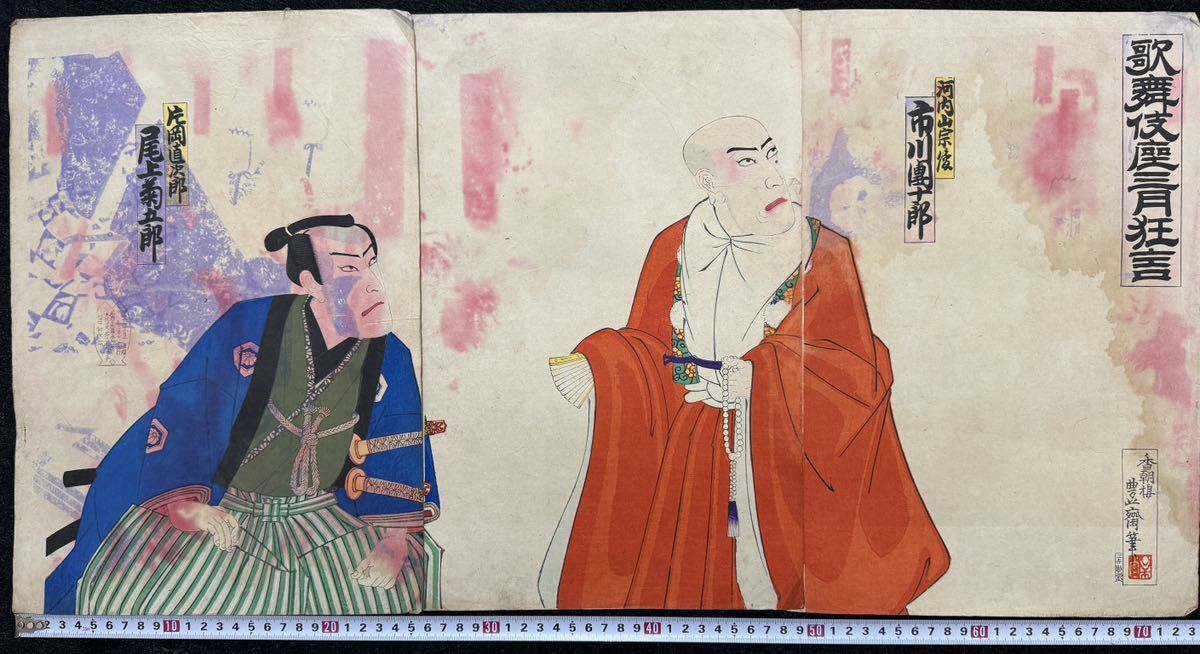 歌舞伎座三月狂言
河内山宗俊
市川團十郎
片岡直次郎
尾上菊五郎
香朝楼
豊斎筆
10 1 2 3 4 5 6 7 8 9 20 1 2 3 4 5 6 7 8 9 30 1 2 3 4 5 6 7 8 9 40 1 2 3 4 5 6 7 8 9 50 1 2 3 4 5 6 7 8 9 60 1 2 3 4 5 6 7 8 9 70 1 2 3